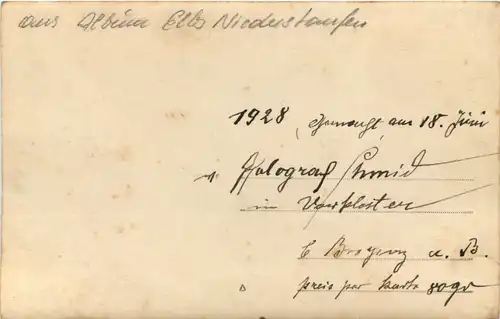 aus Album Elbs Niederstaufen
1928, Gemacht am 18. Juni
Fotograf Schmid
in Vorkloster
b Bregenz a. B.
preis per karte 80 gr